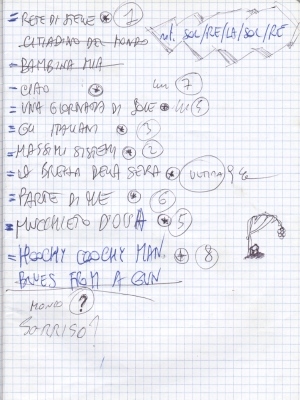 = RETE DI STELLE * 1
rit. SOL/RE/LA/SOL/RE
CITTADINO DEL MONDO
- BAMBINA MIA
- CIAO * 7
= UNA GIORNATA DI SOLE *
= GLI ITALIANI * 3
= MASSIMI SISTEMI * 2
= LA BREZZA DELLA SERA * ULTIMA
= PARTE DI ME * 6
= MUCCHIETO D'OSSA * 5
= HOOCHY COOCHY MAN. * 8
BLUES FROM A GUN
MONDO ?
SORRISO?